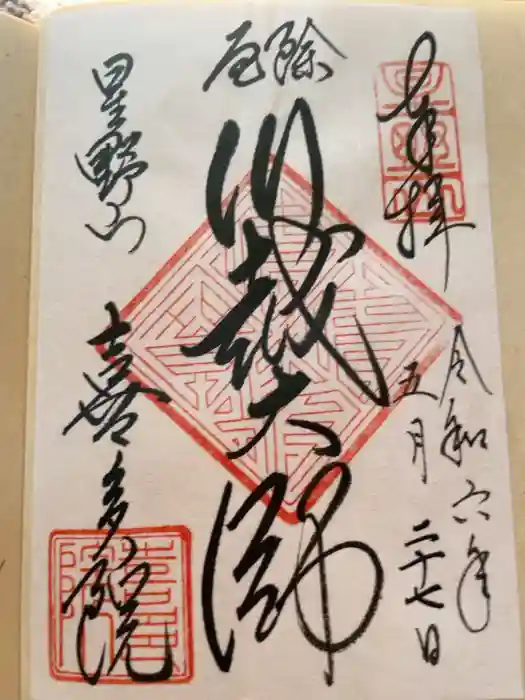 奉拝
令和六年
五月二十七日
厄除
川越大師
星野山
喜多院